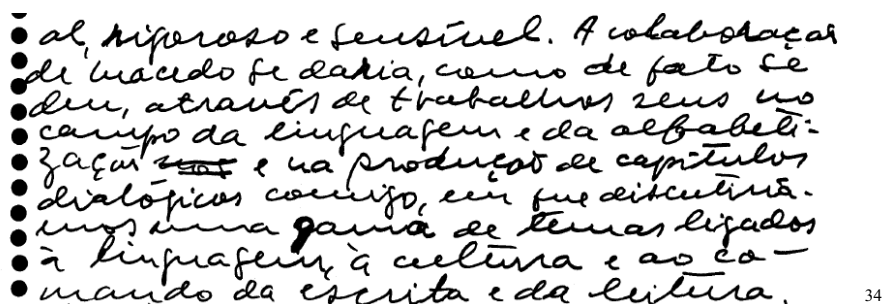 al, rigoroso e sensível. A colaboração
de Macedo se daria, como de fato se
deu, através de trabalhos seus no
campo da linguagem e da alfabeti-
zação e na produção de capítulos
dialógicos comigo, em que discutiría-
mos uma gama de temas ligados
à linguagem, à cultura e ao co-
mando da escrita e da leitura.
34